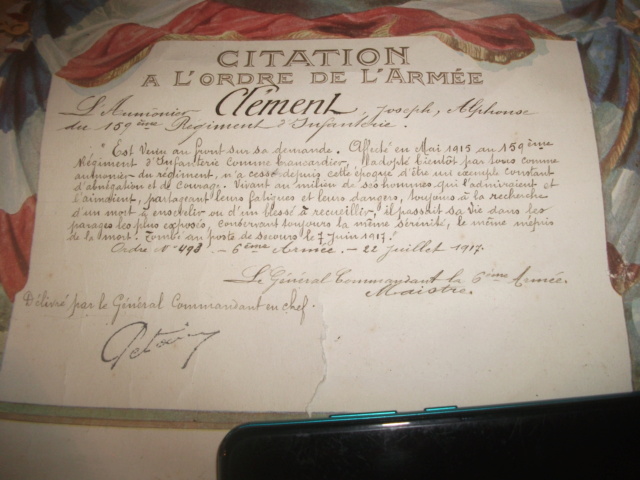 CITATION
A L'ORDRE DE L'ARMÉE
L'Aumônier Clément, Joseph, Alphonse
du 159ème Régiment d'Infanterie.
"Est venu au front sur sa demande. Affecté en Mai 1915 au 159ème
Régiment d'Infanterie comme brancardier, adopté bientôt par tous comme
aumônier du régiment, n'a cessé depuis cette époque d'être un exemple constant
d'abnégation et de courage. Vivant au milieu de ses hommes qui l'admiraient et
l'aimaient, partageant leurs fatigues et leurs dangers, toujours à la recherche
d'un mort à ensevelir ou d'un blessé à recueillir, il passait sa vie dans les
parages les plus exposés, conservant toujours la même sérénité, le même mépris
de la mort. Tombé au poste de secours le 7 Juin 1917."
Ordre N° 493 - 6ème Armée. - 22 Juillet 1917.
Le Général Commandant la 6ème Armée.
Maistre.
Délivré par le Général Commandant en chef.
Petain